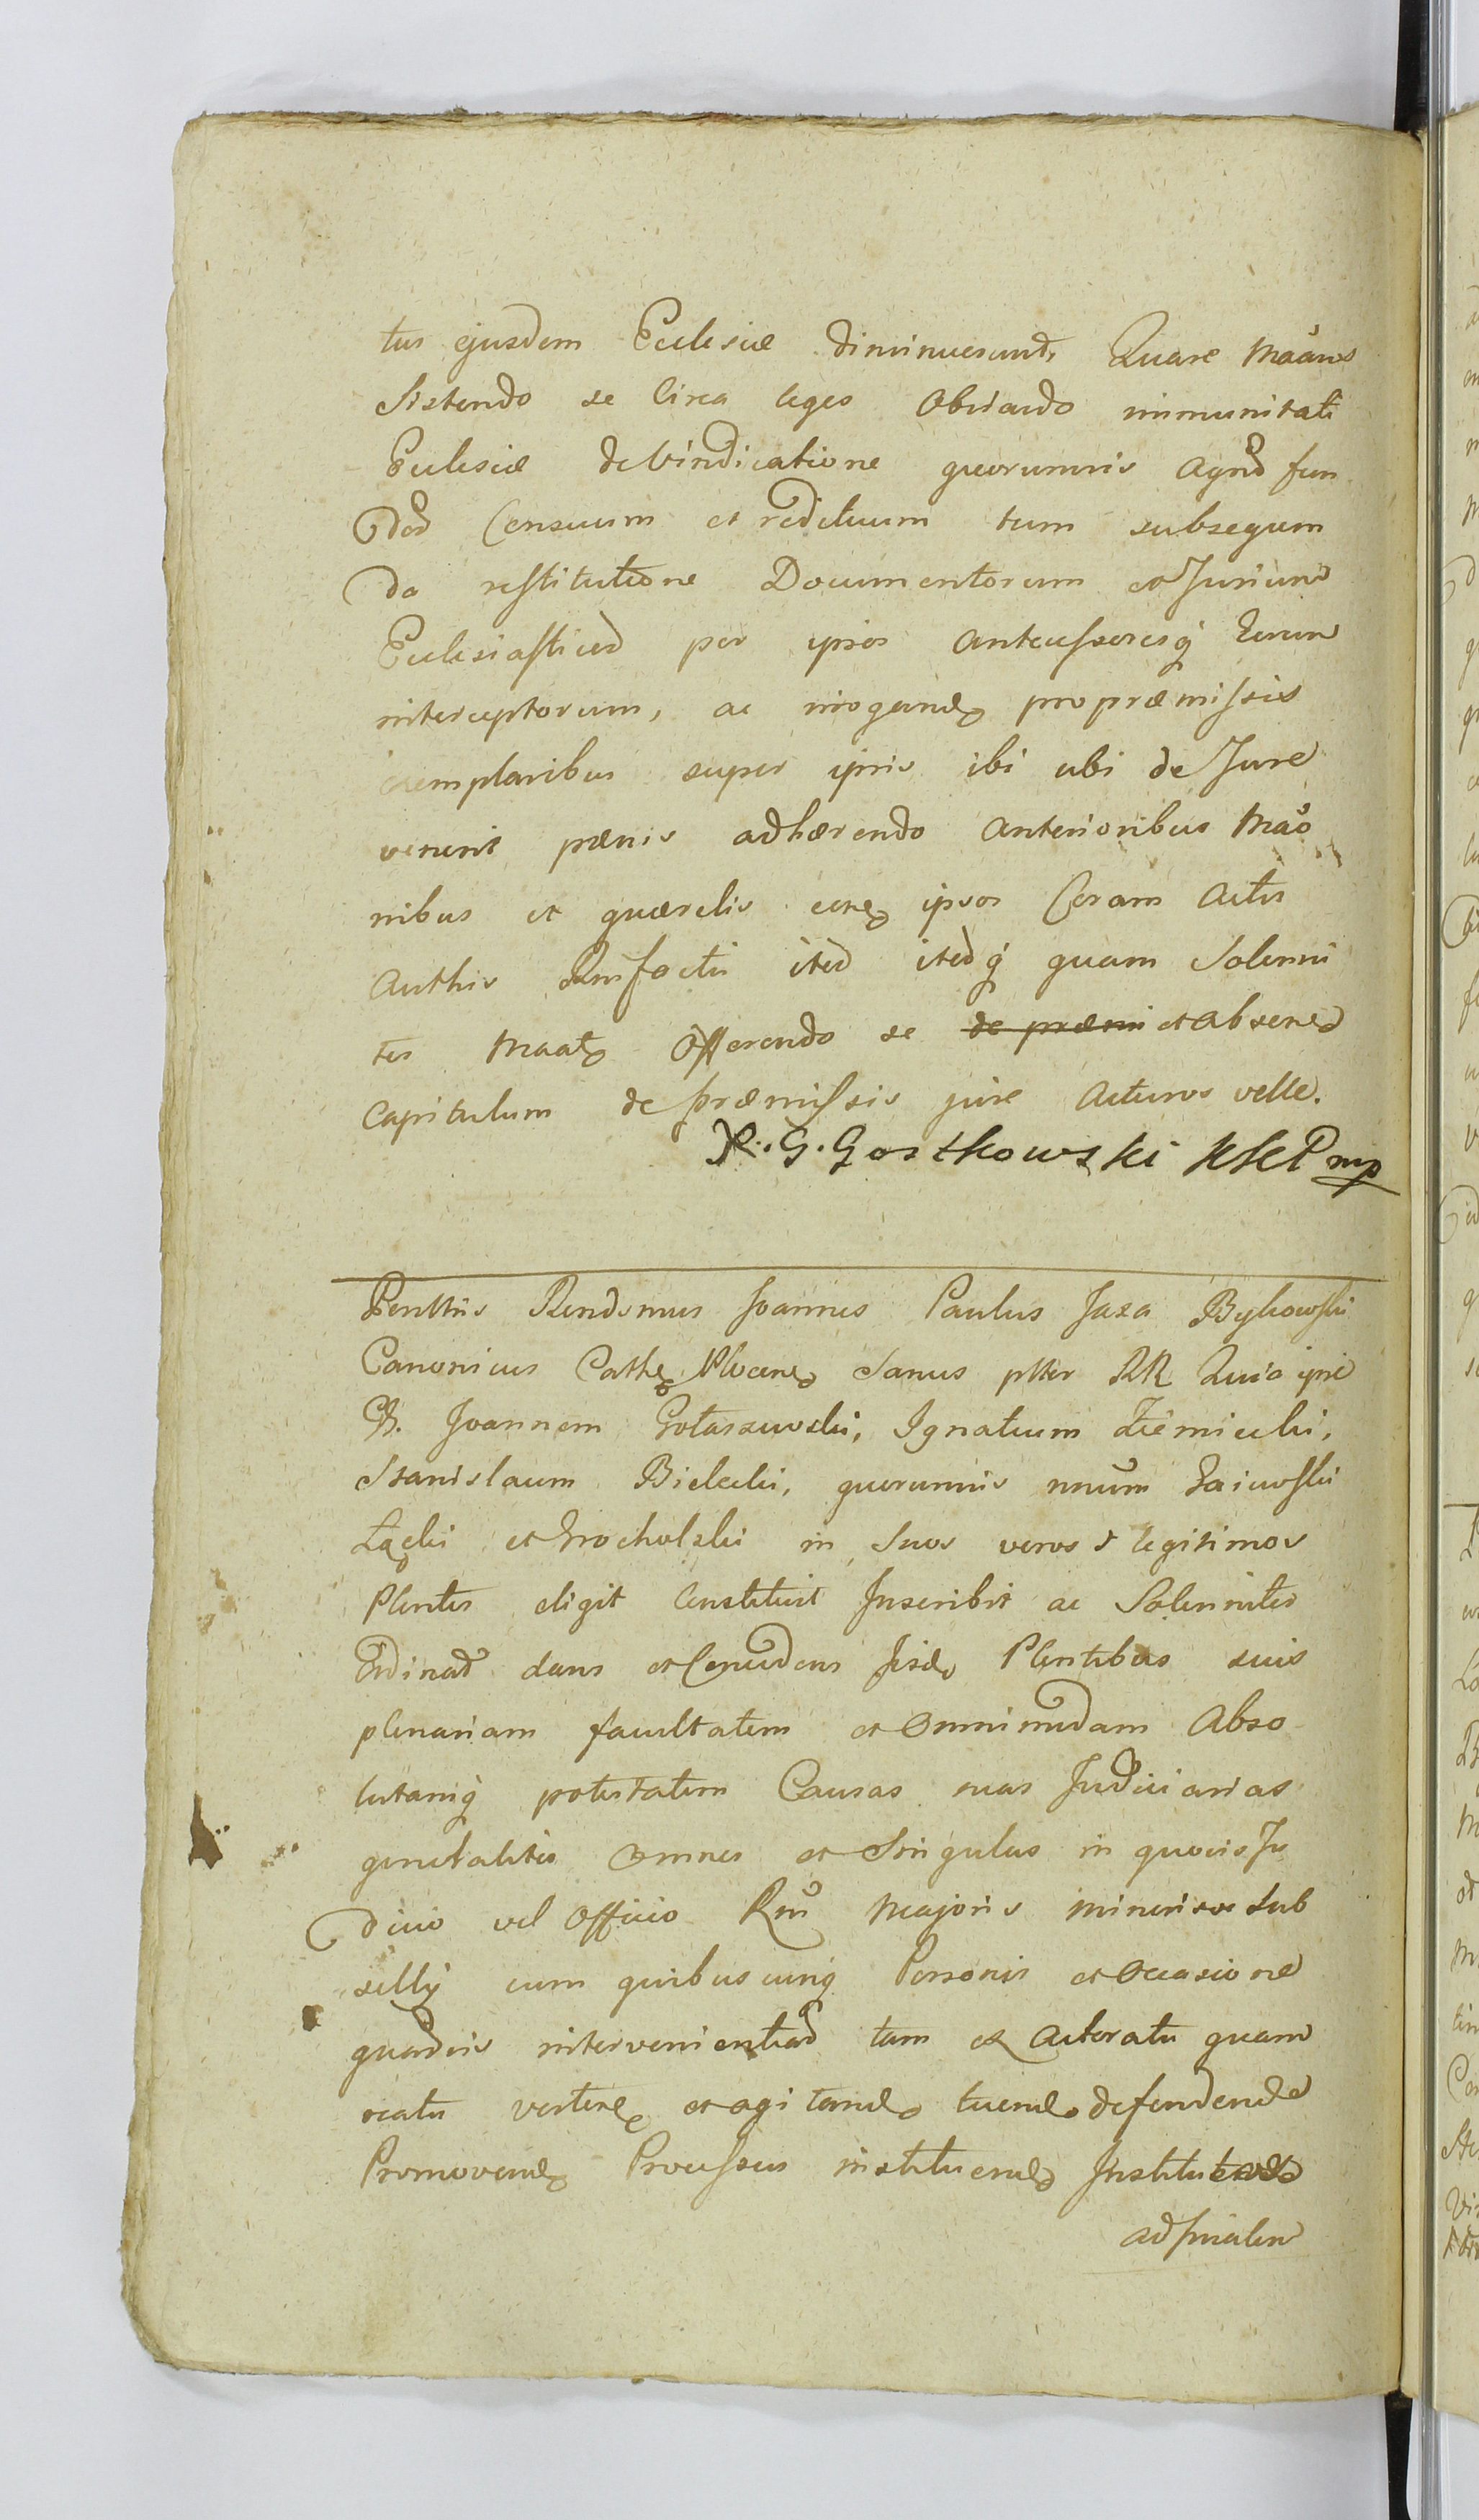 tus ejusdem Ecclesiæ diminuerunt, Quare Maans
Sistendo se Circa leges Obviando immunitati
Ecclesiæ de Vindicatione quorumvis Agrod fun
dod Censuum et redituum tum subsequen
da restitutione Documentorum et Jurium
Ecclesiasticod per ipsos Antecessoresq Eorum
interceptorum, ac irrogand pro præmissis
exemplaribus super ipsis ibi ubi de Jure
venerit pænis adhærendo Anterioribus Mao
nibus et quærelis contra ipsos Coram Actis
Authis factis ited itedq quam Solenni
ter Maat Offerendo se de præmi et absene
Capitulum de præmissis jure Acturos velle.
X. G. Gostkowski KKP mp
Penttus Rendsmus Joannes Paulus Jaxa Bykowski
Canonicus Cathe Plocene Sanus ptter RR Quia ipse
G. Joannem Gołaszewski, Ignatium Ziemiecki,
Stanislaum Bielecki, quorumvis unum
Łącki et Grocholski in Suos veros et legitimos
Plentes eligit Constituit Inscribit ac Solenniter
Ordinat dans et Concedens Jisde Plentibus suis
plenariam facultatem et Omnimodam Abso
lutamq potestatem Causas suas Judiciarias
generaliter Omnes et Singulas in quovis Ju
dicio vel Officio Rni Majoris minorisve Sub
sellij cum quibuscunq Personis et Occasione
quavis intervenientiad tam ex Actoratu quam
reatu vertene et agitand tuend defendende
Promovend Processus instituend Institutos
ad finalem